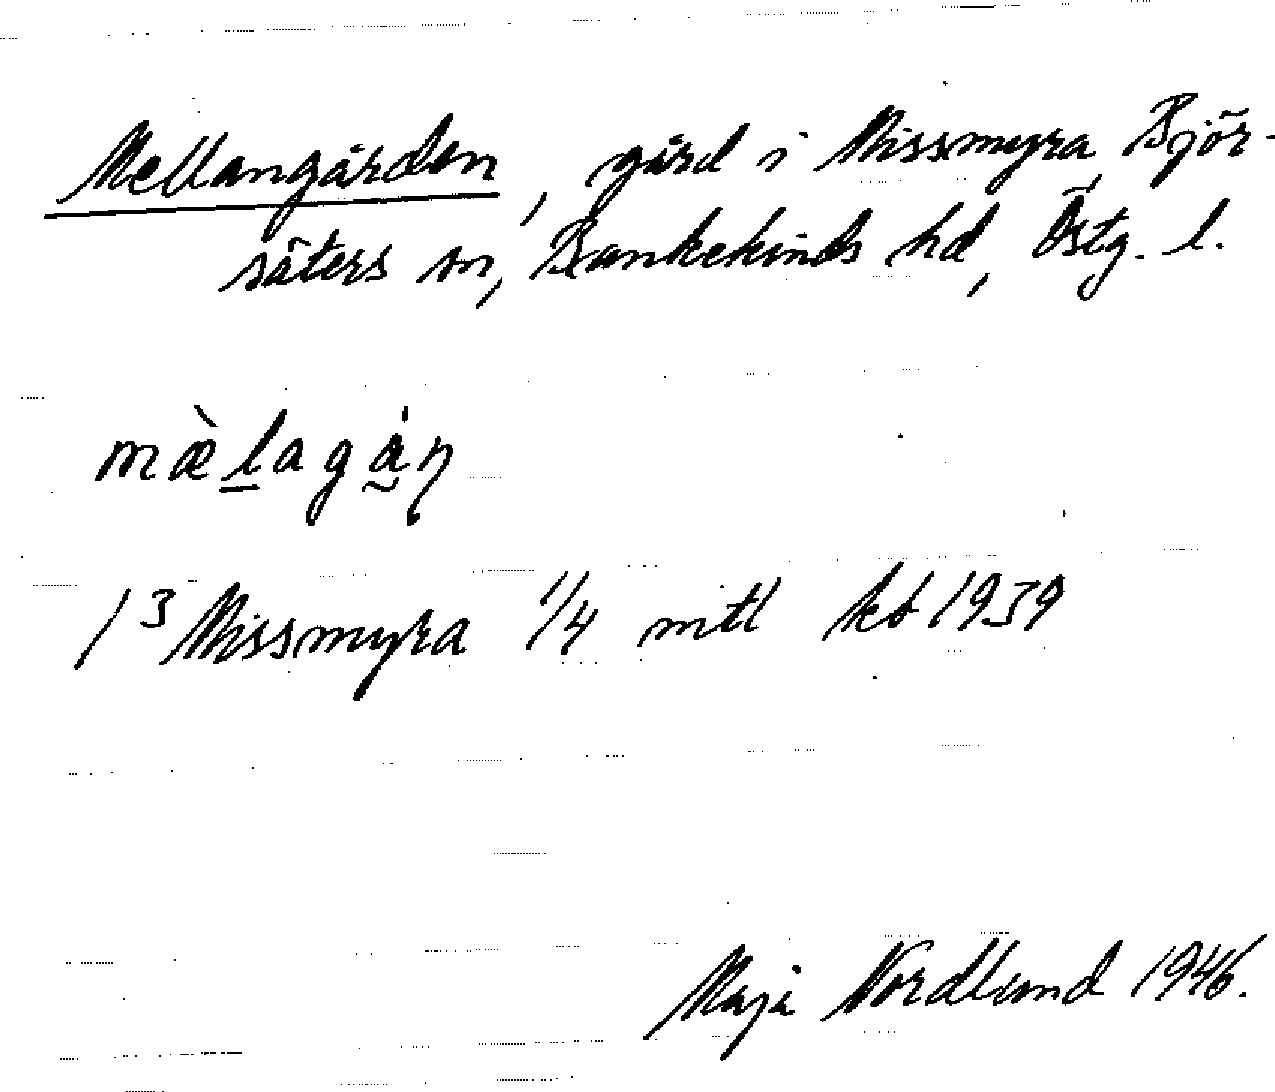 Mellangården, gård i Missmyra, Björ-
säters sn, Bankekinds hd, Östg. l.
mæ̀l̠agå̰̍ṇ
1³ Missmyra 1/4 mtl kb 1939
Maja Nordlund 1946.